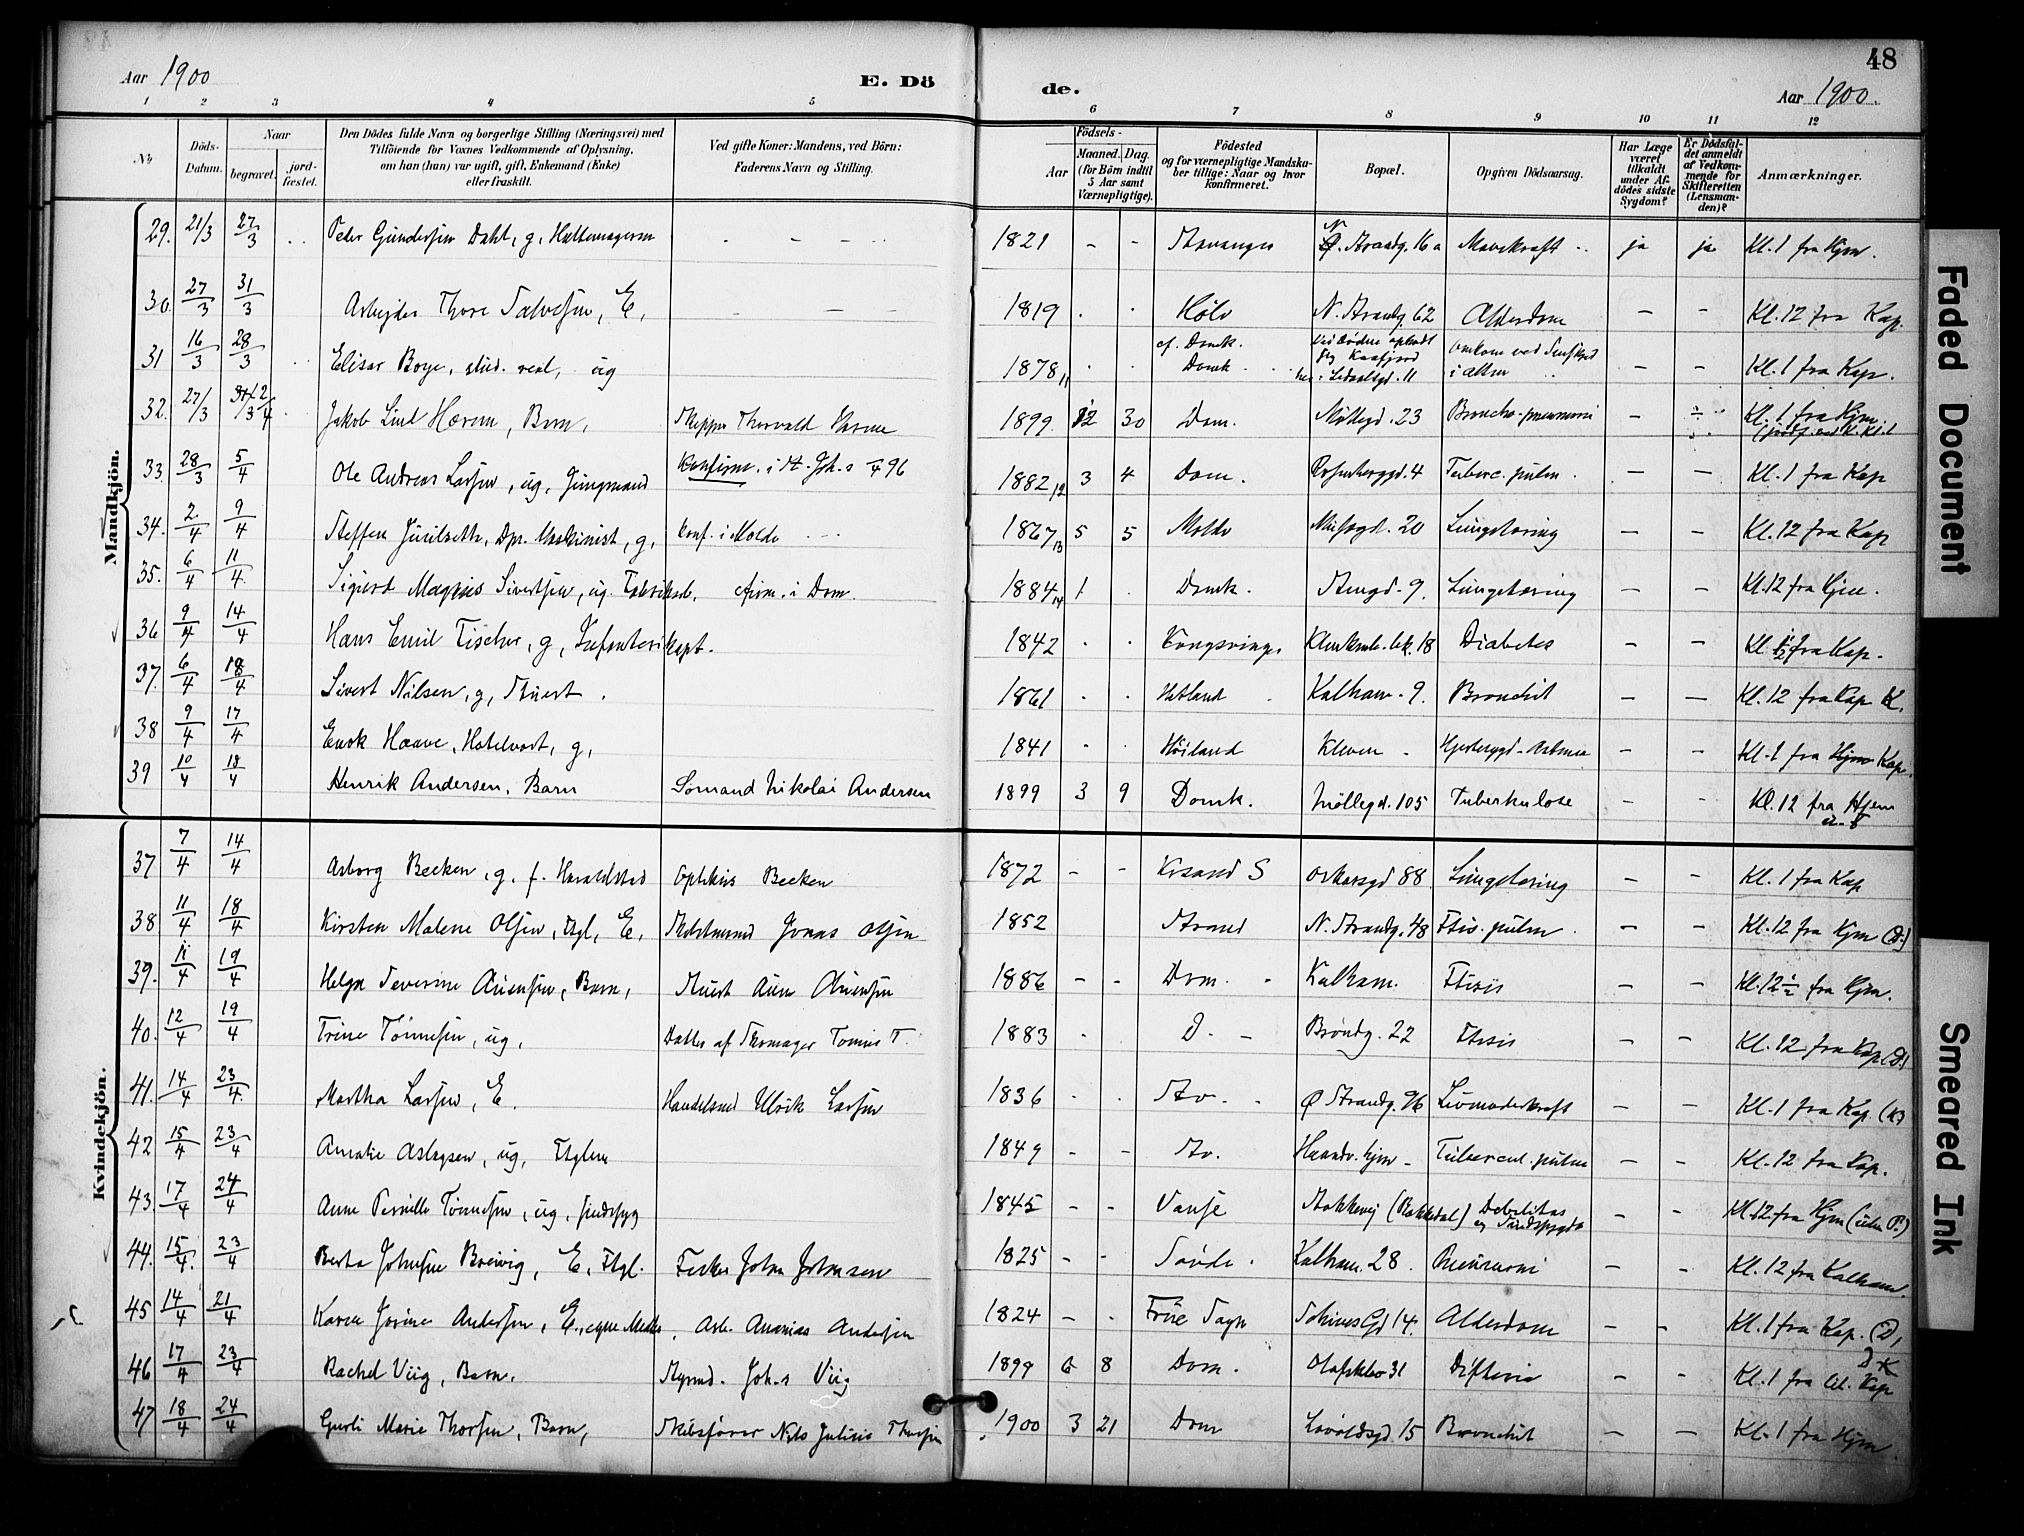 48
Aar 1900
E. Dö
de.
Aar 1900.
1 2 3 4 5 6 7 8 9 10 11 12
No
Döds-Datum.
Naar
begravet.
jord-fæstet.
Den Dödes fulde Navn og borgerlige Stilling (Næringsvei) med
Tilföiende for Voxnes Vedkommende af Oplysning,
om han (hun) var ugift, gift, Enkemand (Enke)
eller fraskilt.
Ved gifte Koner: Mandens, ved Börn:
Faderens Navn og Stilling.
Födsels-
Aar
Maaned. Dag.
(for Börn indtil
5 Aar samt
Værnepligtige).
Födested
og for værnepligtige Mandska-
ber tillige: Naar og hvor
konfirmeret.
Bopæl.
Opgiven Dödsaarsag.
Har Læge
været
tilkaldt
under Af-
dödes sidste
Sygdom?
Er Dödsfal-
det anmeldt
af Vedkom-
mende for
Skifteretten
(Lensman-
den)?
Anmærkninger.
Mandkjön.
29. 21/3 27/3 Peder Gundersen Dahl, g, - - - 1821 - - Stavanger N. Strandg. 16a Mavekræft ja ja Kl. 1 fra Hjm.
30. 27/3 31/3 Arbejder Thore Salvesen, E, - - - 1819 N. Strandg. 62 Alderdom - - Kl. 12 fra Kap.
31 16/3 28/3 Elisar Boye, stud. real, ug 1878 Domk. Ledaalsgd. 11 i Alten - - Kl. 1 fra Kap.
32. 27/3 2/4 Jakob Emil Hærem, Barn, Skipper Thorvald Hærem 1899 12 30 Dom. Møllegd. 23 Broncho-pneumoni - Kl. 1 fra Hjm
33 28/3 5/4 Ole Andreas Larsen, ug, Jungmand Konfirm. i St. Joh.s 96 1882 3 4 Dom. Rosenberggd. 4 Tuberc. pulm. - - Kl. 1 fra Kap
34. 2/4 9/4 Steffen Juulseth, Dpr. Maskinist, g, konf. i Molde 1867 5 5 Molde Musægd. 20 Lungetæring - - Kl. 12 fra Kap
35. 6/4 11/4 Sigurd Magnus Sivertsen, ug. Fabrikarb. i Dom. 1884 1 Domk. Stengd. 9. Lungetæring - - Kl. 12 fra Hjm.
36 9/4 14/4 Hans Emil Fischer, g, Infanterikapt. 1842 Kongsvinger 18 Diabetes - - fra Kap.
37. 6/4 18/4 Sivert Nilsen, g, Stuert. 1861 Hetland Kalham. 9. Bronchit - - Kl. 12 fra Kap K.
38 9/4 17/4 Enok Haave, Hotelvært, g, 1841 Høiland Kleven - - - Kl. 1 fra Hjm Kap.
39 10/4 18/4 Henrik Andersen. Barn Sømand Nikolai Andersen 1899 3 9 Domk. Møllegd. 105 Tuberkulose - - Kl. 12 fra Hjem
Kvindekjön.
37 7/4 14/4 Asborg Becken, g. f. Haraldstad Optikus Becken 1872 - - Krsand S Oskarsgd 88 Lungetæring - - Kl. 1 fra Kap
38 11/4 18/4 Kirsten Malene Olsen, Ftgl, E, Jonas Olsen 1852 Strand N. Strandg. 48 Ftis. pulm. - - Kl. 12 fra Hjm (D.)
39. 11/4 19/4 Helga Severine Auensen, Barn, Stuert Auen Auensen 1886 - - Dom. Kalham. Ftisis - - Kl. 12 1/2 fra Hjm.
40. 12/4 19/4 Trine Tønnesen, ug, Datter af Skomager Tønnes T. 1883 D. - Brøndg. 22 Ftisis - - Kl. 12 fra Kap (D.)
41. 14/4 23/4 Martha Larsen, E. Handelsmd Ulrik Larsen 1836 Stv. Ø Strandg. 96 Livmoderkræft - - Kl. 1 fra Kap. (K)
42 15/4 23/4 Amalie Aslagsen, ug, Ftglem 1849 - - Stv. Haandv. hjm - Tubercul. pulm - - Kl. 12 fra Kap.
43 17/4 24/4 Anne Pernille Tønnesen, ug, sindssyg 1845 - - Vanse Stokkavej (Bakkedal) Debilitas og Sindssygd. - - Kl. 12 fra Hjm (uden P.)
44. 15/4 23/4 Berta Johnsen Breivig, E, Ftgl. Fisker John Johnsen 1825 - - Søvde. Kalham. 28. Pneumoni - - Kl. 12 fra Kalham.
45 14/4 21/4 Karen Jorine Andersen, E., egne Midler, Arb. Ananias Andersen 1824 - - Frue Sogn Gd 14. Alderdom - - Kl. 1 fra Kap. (D)
46 17/4 23/4 Rachel Viig, Barn. Styrmd. Joh.s Viig 1899 6 8 Dom. Olafsklev 31 Difteri - - Kl. 1 fra lil. Kap
47 18/4 24/4 Gurli Marie Thorsen, Barn, Skibsfører Nils Julius Thorsen 1900 3 21 Dom Løvoldsgd 15 Bronchit - - Kl. 1 fra Hjm
Faded Document
Smeared Ink